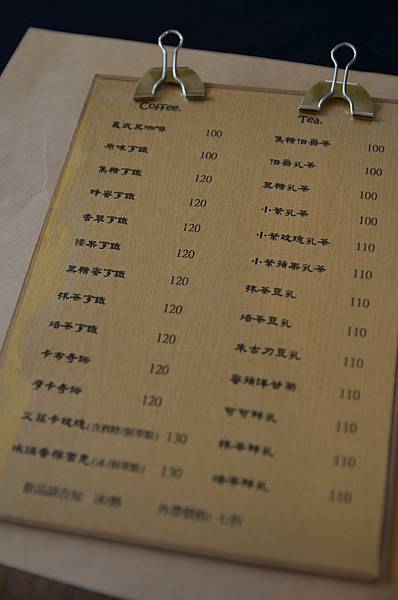 Coffee.
義式黑咖啡 100
原味拿鐵 100
焦糖拿鐵 120
蜂蜜拿鐵 120
香草拿鐵 120
榛果拿鐵 120
黑糖蜜拿鐵 120
抹茶拿鐵 120
焙茶拿鐵 120
卡布奇諾 120
摩卡奇諾 120
艾菲卡玫瑰(含酒精/限單點) 130
冰淇香榭賣思(冰/限單點) 130
Tea.
焦糖伯爵乳茶 100
伯爵乳茶 100
黑糖乳茶 100
小紫乳茶 100
小紫玫瑰乳茶 110
小紫蘋果乳茶 110
抹茶豆乳 110
焙茶豆乳 110
朱古力豆乳 110
蜜蘋洋甘菊 110
可可鮮乳 110
抹茶鮮乳 110
焙茶鮮乳 110
飲品請告知 冰/熱 外帶價格: 七折